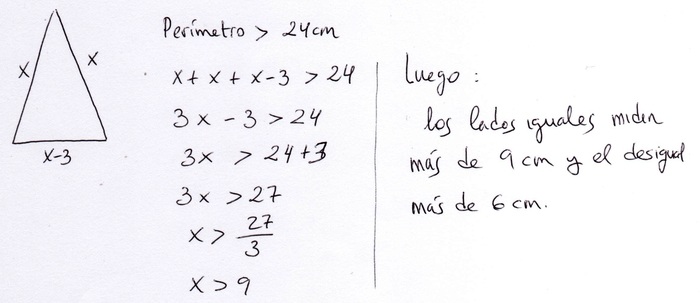 x
x
x-3
Perímetro > 24cm
x + x + x-3 > 24
3x - 3 > 24
3x > 24+3
3x > 27
x > 27/3
x > 9
Luego :
los lados iguales miden
más de 9 cm y el desigual
más de 6 cm.